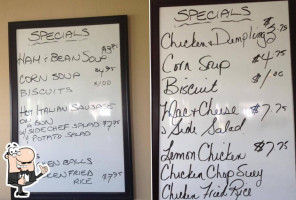 SPECIALS
HAM & BEAN SOUP
CORN SOUP $4.75
BISCUITS $1.00
HOT ITALIAN SAUSAGE
ON BUN
W/SIDE CHEF SALAD $7.75
& POTATO SALAD
BALLS
RICE $7.75
SPECIALS
Chicken & Dumplings
Corn Soup $4.75
Biscuit $1.00
Mac & Cheese $7.75
& Side Salad
Lemon Chicken $7.75
Chicken Chop Suey
Chicken Fried Rice